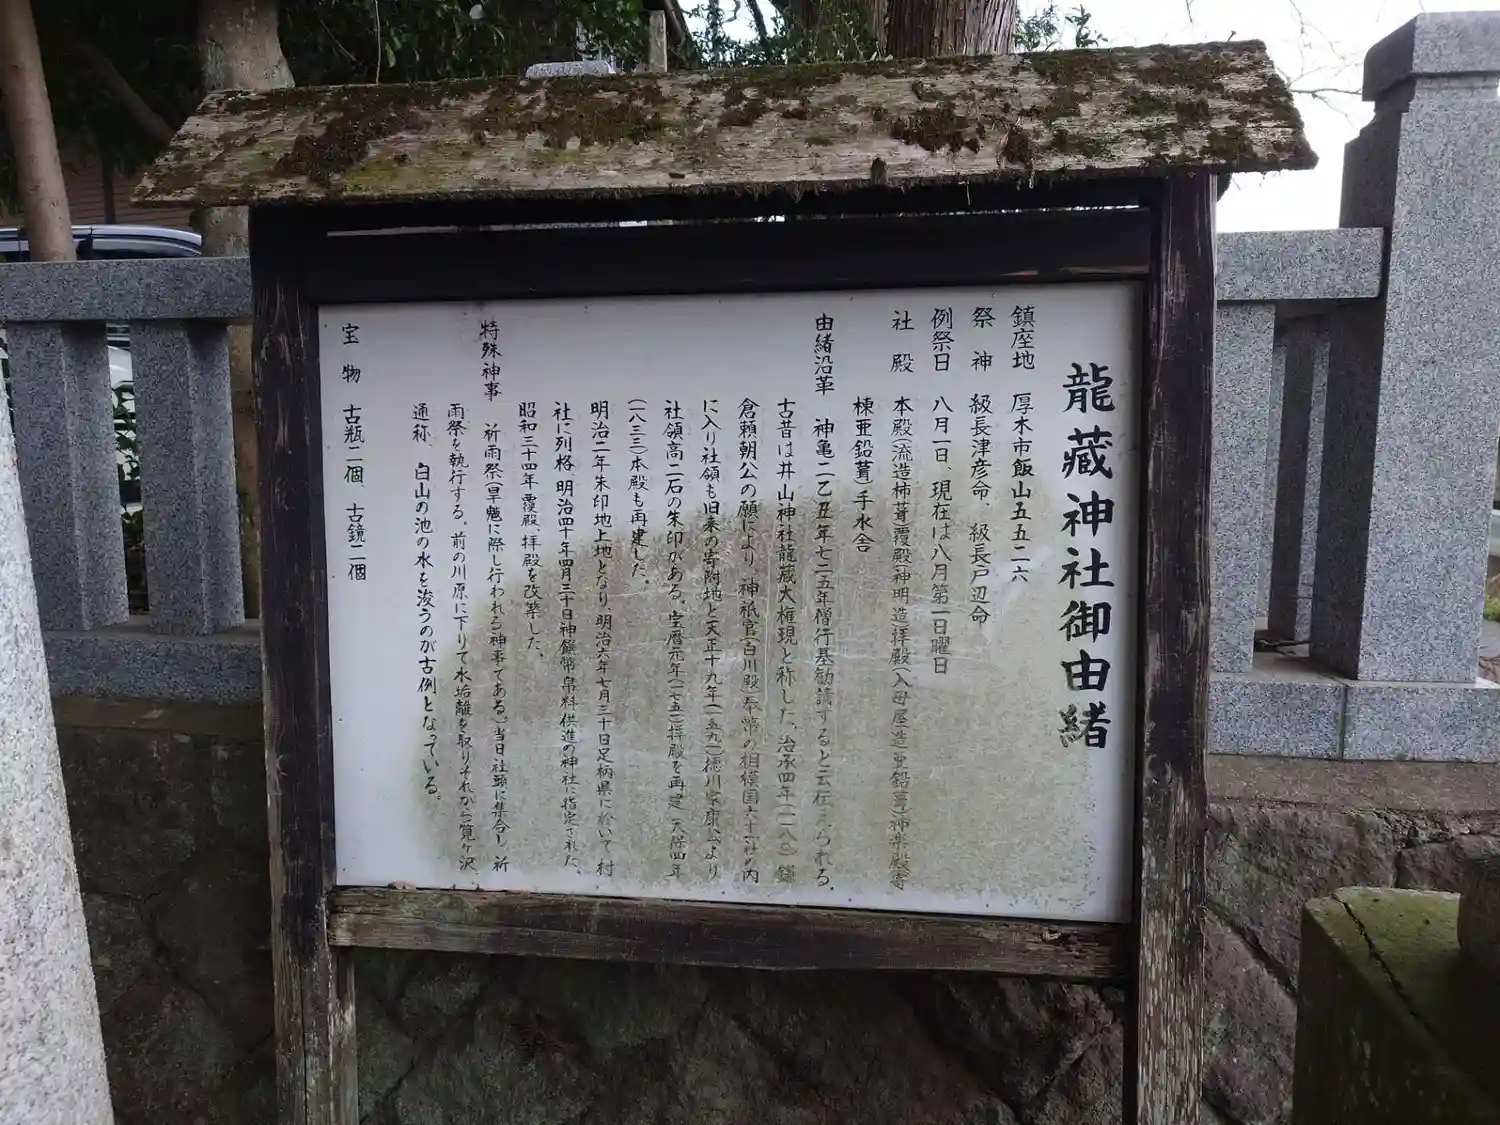 龍藏神社御由緒
鎮座地 厚木市飯山五五二六
祭神 級長津彦命、級長戸辺命
例祭日 八月一日、現在は八月第一日曜日
社殿 本殿(流造柿葺)覆殿(神明造)拝殿(入母屋造亜鉛葺)神楽殿(寄
棟亜鉛葺)手水舎
由緒沿革 神亀二乙丑年七二五年僧行基勧請すると云伝えられる。
古昔は井山神社龍蔵大権現と称した。治承四年(一一八〇)鎌
倉頼朝公の願により、神祇官(白川殿)奉幣の相模国六十一社の内
に入り社領も旧来の寄附地と天正十九年(一五九一)徳川家康公より
社領高二石の朱印がある。宝暦元年(一七五一)拝殿を再建、天保四年
(一八三三)本殿も再建した。
明治二年朱印地上地となり、明治六年七月三十日足柄県に於いて村
社に列格、明治四十年四月三十日神饌幣帛料供進の神社に指定された、
昭和三十四年覆殿、拝殿を改築した。
特殊神事 祈雨祭(旱魃に際し行われる神事である)当日社頭に集合し、祈
雨祭を執行する。前の川原に下りて水垢離を取りそれから筧ヶ沢
通称、白山の池の水を浚うのが古例となっている。
宝物 古瓶二個、古鏡二個